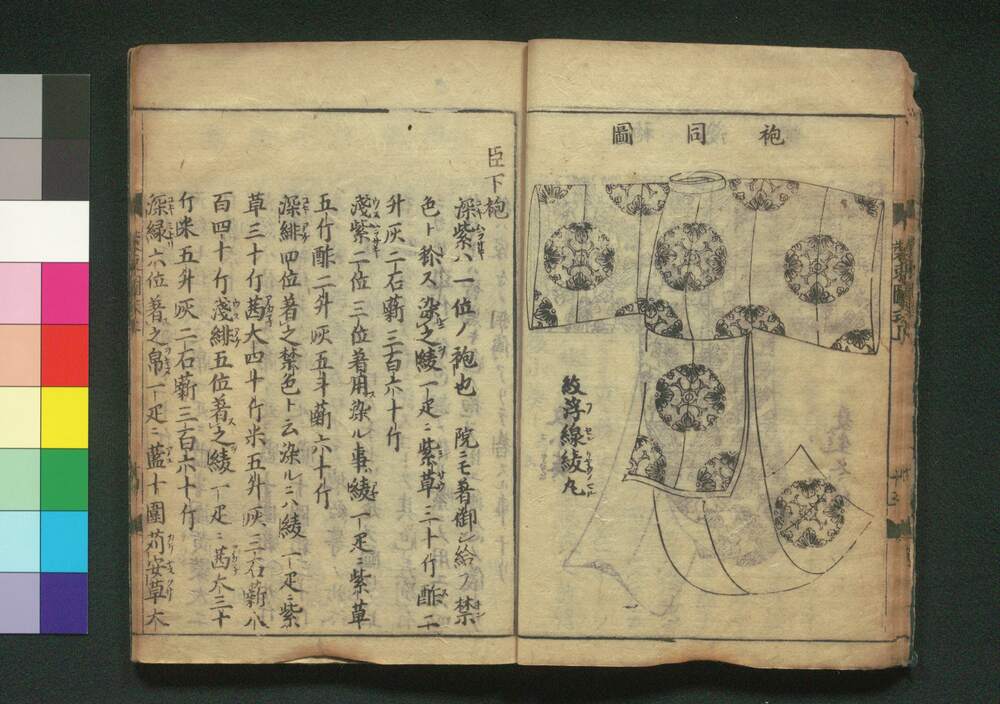 袍同圖
紋浮線綾丸
臣下袍
深紫ハ一位ノ袍也　院ニモ着御シ給フ禁
色ト称ス染之綾一疋ニ紫草三十斤酢二
升灰二石薪三百六十斤
淺紫二位三位着用染ル事綾一疋ニ紫草
五斤酢二升灰五斗薪六十斤
深緋四位着之禁色ト云染ルニハ綾一疋ニ紫
草三十斤茜大四十斤米五升灰三石薪八
百四十斤淺緋五位着之綾一疋ニ茜大三十
斤米五升灰二石薪三百六十斤
深緑六位着之帛一疋ニ藍十圍苅安草大